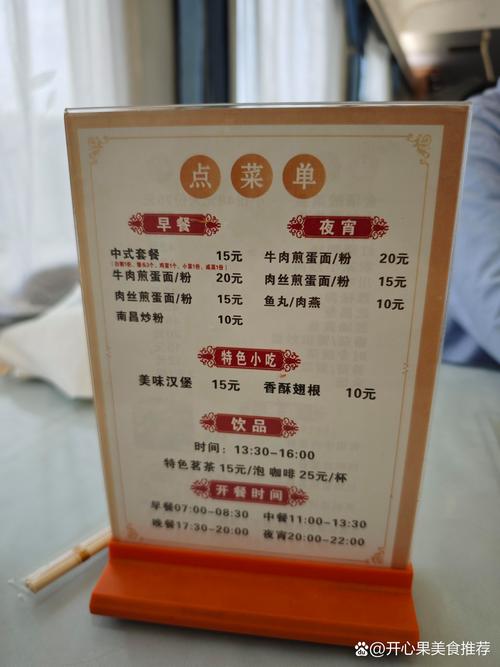 点菜单
早餐
中式套餐 15元
牛肉煎蛋面/粉 20元
肉丝煎蛋面/粉 15元
南昌炒粉 10元
夜宵
牛肉煎蛋面/粉 20元
肉丝煎蛋面/粉 15元
鱼丸/肉燕 10元
特色小吃
美味汉堡 15元 香酥翅根 10元
饮品
时间：13:30-16:00
特色茗茶 15元/泡 咖啡 25元/杯
开餐时间
早餐07:00-08:30 中餐11:00-13:30
晚餐17:30-20:00 夜宵20:00-22:00
开心果美食推荐